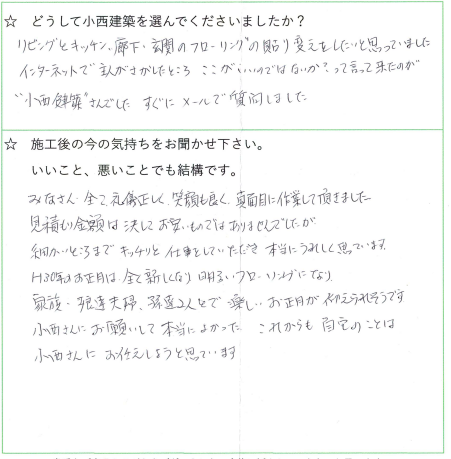 ☆ どうして小西建築を選んでくださいましたか？
リビングとキッチン、廊下・玄関のフローリングの貼り変えをしたいと思っていました
インターネットで主人がさがしたところ ここがいいのではないか？って言って来たのが
"小西建築"さんでした すぐに メールで質問しました
☆ 施工後の今の気持ちをお聞かせ下さい。
いいこと、悪いことでも結構です。
みなさん 全て礼儀正しく、笑顔も良く、真面目に作業して頂きました
見積もり金額は決してお安いものではありませんでしたが
細かいところまで キッチリと 仕事をしていただき 本当にうれしく思っています
H30年のお正月は、全て新しくなり 明るいフローリングになり
家族・娘達夫婦、孫達2人とで 楽しいお正月が 迎えられそうです
小西さんにお願いして本当によかった これからも 自宅のことは
小西さんに お任えしようと思っています